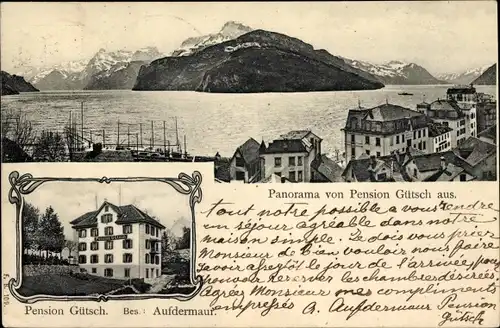 Panorama von Pension Gütsch aus.
Tout notre possible a vous rendre
un séjour agréable dans notre
maison simple. Je dois vous prier
Monsieur de bien vouloir nous faire
savoir aussitôt le jour de l'arrivée, pour
pouvoir réserver les chambres désirées.
Agréez Monsieur mes compliments
empressés A. Aufdermaur Pension
Gütsch
Pension Gütsch. Bes.: Aufdermaur.